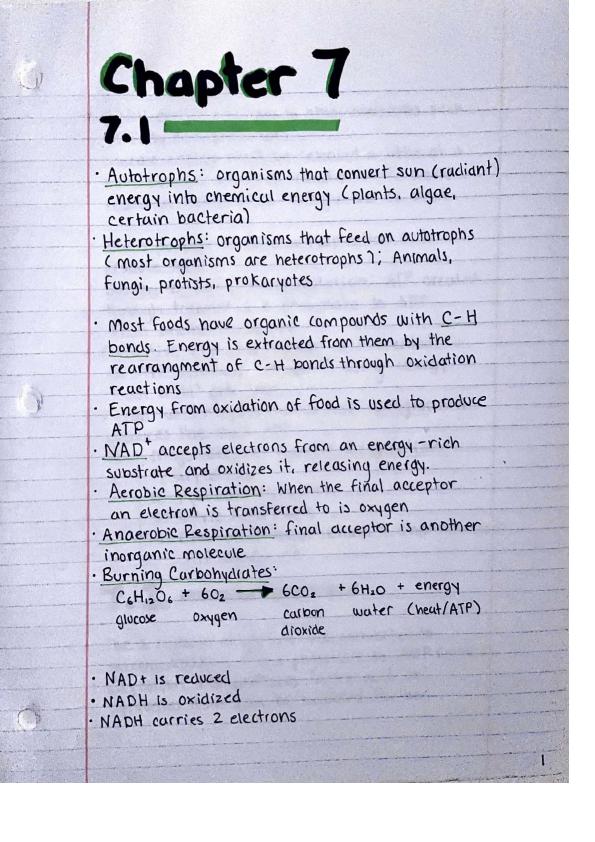 Chapter 7
7.1
• Autotrophs: organisms that convert sun (radiant)
energy into chemical energy (plants, algae,
certain bacteria)
• Heterotrophs: organisms that feed on autotrophs
(most organisms are heterotrophs); Animals,
fungi, protists, prokaryotes
• Most foods have organic compounds with C-H
bonds. Energy is extracted from them by the
rearrangment of C-H bonds through oxidation
reactions
• Energy from oxidation of food is used to produce
ATP
• NAD⁺ accepts electrons from an energy-rich
substrate and oxidizes it, releasing energy.
• Aerobic Respiration: When the final acceptor
an electron is transferred to is oxygen
• Anaerobic Respiration: final acceptor is another
inorganic molecule
• Burning Carbohydrates:
C₆H₁₂O₆ + 6O₂ → 6CO₂ + 6H₂O + energy
glucose oxygen carbon water (heat/ATP)
dioxide
• NAD+ is reduced
• NADH is oxidized
• NADH carries 2 electrons
1